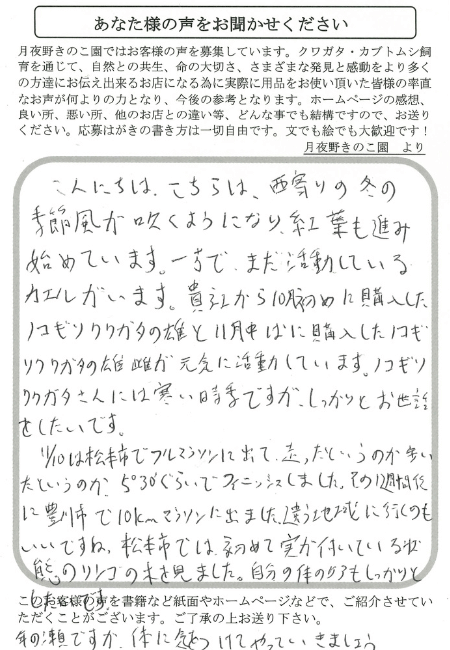 あなた様の声をお聞かせください
月夜野きのこ園ではお客様の声を募集しています。クワガタ・カブトムシ飼
育を通じて、自然との共生、命の大切さ、さまざまな発見と感動をより多く
の方達にお伝え出来るお店になる為に実際に用品をお使い頂いた皆様の率直
なお声が何よりの力となり、今後の参考となります。ホームページの感想、
良い所、悪い所、他のお店との違い等、どんな事でも結構ですので、お送り
ください。応募はがきの書き方は一切自由です。文でも絵でも大歓迎です！
月夜野きのこ園　より
こんにちは、こちらは、西寄りの冬の
季節風が吹くようになり、紅葉も進み
始めています。一方で、まだ活動している
カエルがいます。貴社から10月初めに購入した
ノコギリクワガタの雄と11月中ばに購入したノコギ
リクワガタの雄雌が元気に活動しています。ノコギリ
クワガタさんには寒い時季ですが、しっかりとお世話
をしたいです。
11/10は松本市でフルマラソンに出て、走ったというのか歩い
たというのか、5°30′ぐらいでフィニッシュしました。その1週間後
に豊川市で10kmマラソンに出ました。遠い地域に行くのも
いいですね。松本市では、初めて実が付いている状
態のリンゴの木を見ました。自分の体のケアもしっかりと
したいです。
このお客様の声を書籍など紙面やホームページなどで、ご紹介させてい
ただくことがございます。ご了承の上お送り下さい。
年の瀬ですが、体に気をつけてやっていきましょう